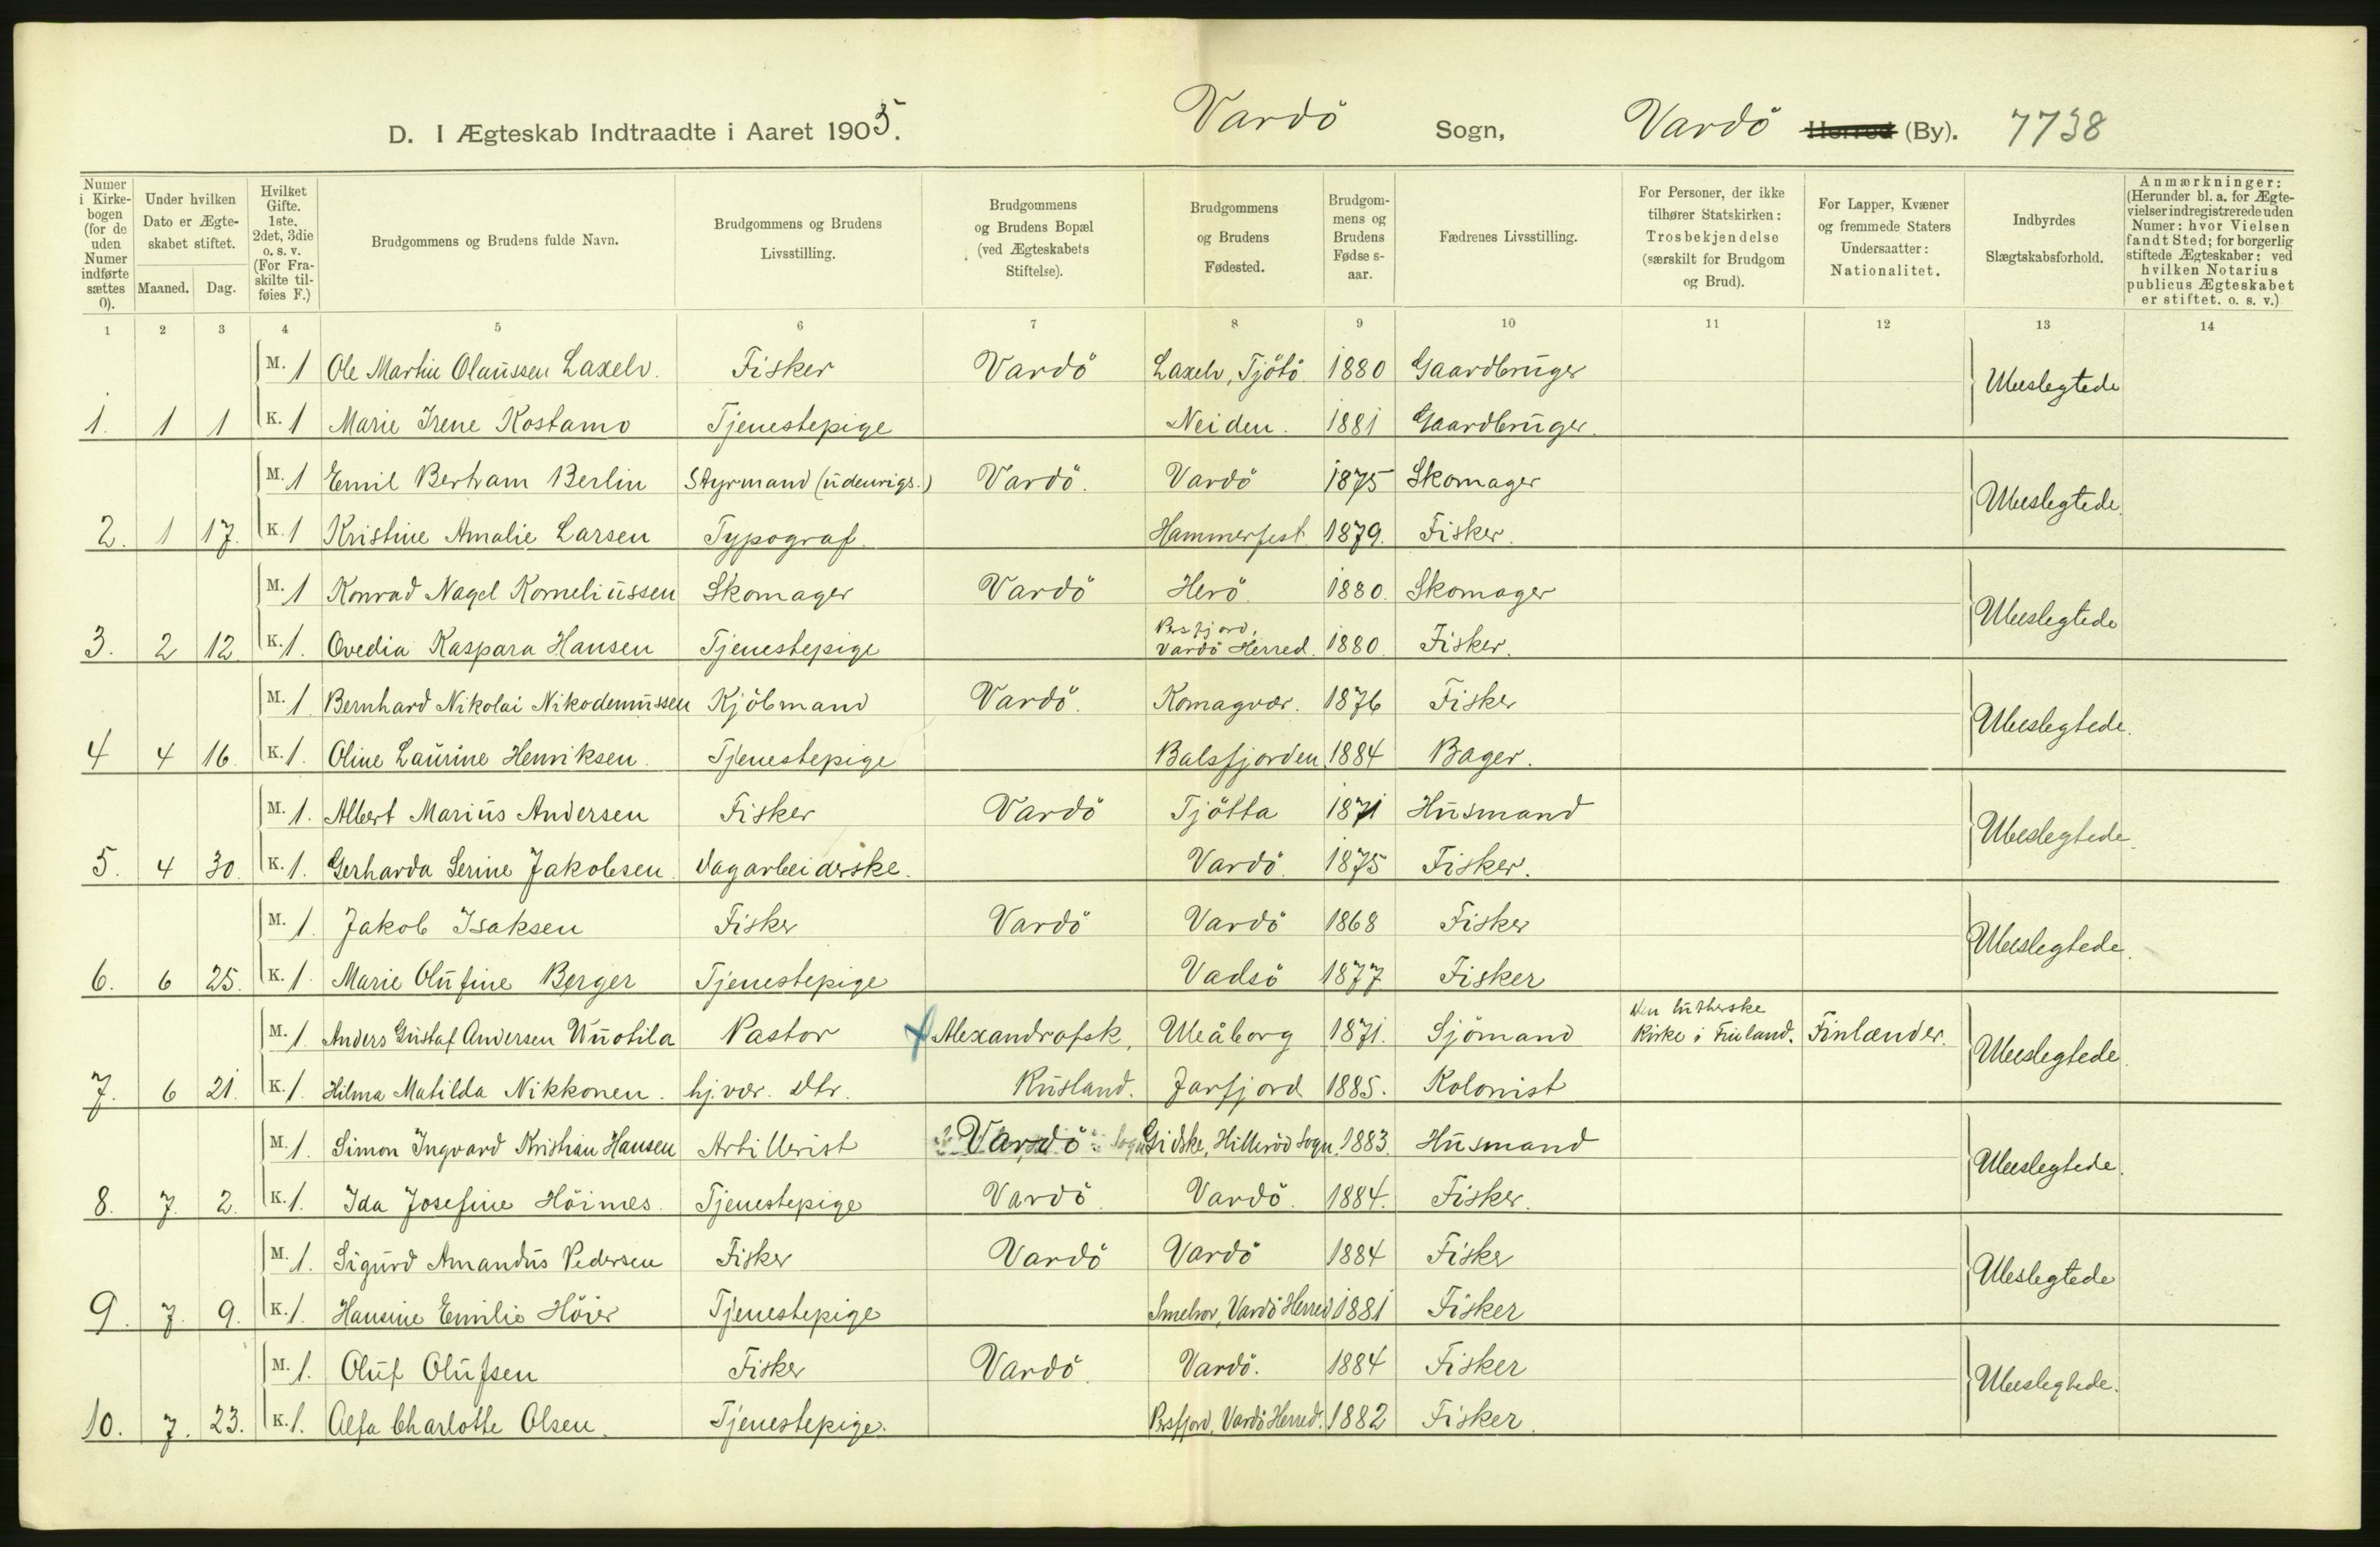 D. I Ægteskab Indtraadte i Aaret 1905. Vardö Sogn, Vardö Herred (By). 7738
Numer i Kirke-bogen (for de uden Numer indførte sættes 0).
Under hvilken Dato er Ægte-skabet stiftet.
Maaned. Dag.
Hvilket Gifte. 1ste. 2det, 3die o. s. v. (For Fra-skilte til-føies F.)
Brudgommens og Brudens fulde Navn.
Brudgommens og Brudens Livsstilling.
Brudgommens og Brudens Bopæl (ved Ægteskabets Stiftelse).
Brudgommens og Brudens Fødested.
Brudgom-mens og Brudens Fødse s-aar.
Fædrenes Livsstilling.
For Personer, der ikke tilhører Statskirken: Trosbekjendelse (særskilt for Brudgom og Brud).
For Lapper, Kvæner og fremmede Staters Undersaatter: Nationalitet.
Indbyrdes Slægtskabsforhold.
Anmærkninger: (Herunder bl. a. for Ægte-vielser indregistrerede uden Numer: hvor Vielsen fandt Sted; for borgerlig stiftede Ægteskaber: ved hvilken Notarius publicus Ægteskabet er stiftet. o. s. v.)
1 2 3 4 5 6 7 8 9 10 11 12 13 14
M. 1 Ole Martin Olaussen Laxelv. Fisker Vardö Laxelv, Tjötö. 1880 Gaardbruger Ubeslegtede
1. 1 1 K. 1 Marie Irene Kostamo Tjenestepige Neiden. 1881 Gaardbruger.
M. 1 Emil Bertram Berlin Styrmand (udenrigs.) Vardö. Vardö 1875 Skomager Ubeslegtede.
2. 1 17. K. 1 Kristine Amalie Larsen Typograf. Hammerfest 1879. Fisker.
M. 1 Konrad Nagel Korneliussen Skomager Vardö Herö. 1880. Skomager Ubeslegtede
3. 2 12. K. 1. Ovedia Kaspara Hansen Tjenestepige Persfjord, Vardö Herred. 1880. Fisker.
M. 1. Bernhard Nikolai Nikodemussen Kjöbmand Vardö. Komagvær. 1876 Fisker Ubeslegtede.
4 4 16. K. 1. Oline Laurine Henriksen. Tjenestepige Balsfjorden. 1884 Bager.
M. 1. Albert Marius Andersen Fisker Vardö Tjötta 1871 Husmand Ubeslegtede.
5. 4 30. K. 1. Gerharda Serine Jakobsen. Dagarbeiderske. Vardö. 1875 Fisker.
M. 1. Jakob Isaksen Fisker Vardö Vardö 1868 Fisker Ubeslegtede.
6. 6 25. K. 1. Marie Olufine Berger Tjenestepige Vadsö 1877 Fisker
M. 1. Anders Gustaf Andersen Wuotila Pastor Alexandrofsk, Uleåborg 1871. Sjömand Den lutherske Kirke i Finland. Finlænder. Ubeslegtede
7. 6 21. K. 1. Hilma Matilda Nikkonen. hj.vær. Dtr. Rusland. Jarfjord 1885. Kolonist
M. 1. Simon Ingvard Kristian Hansen Artillerist Vardö Gidske, Hitterö Sogn. 1883. Husmand Ubeslegtede.
8. 7. 2. K. 1. Ida Josefine Höines. Tjenestepige Vardö. Vardö. 1884. Fisker.
M. 1. Sigurd Amandus Pedersen Fisker Vardö Vardö 1884 Fisker Ubeslegtede
9. 7. 9. K. 1. Hansine Emilie Höier Tjenestepige Smelror, Vardö Herred 1881 Fisker
M. 1. Oluf Olufsen Fisker Vardö. Vardö. 1884 Fisker Ubeslegtede.
10. 7. 23. K. 1. Alfa Charlotte Olsen. Tjenestepige. Persfjord, Vardö Herred. 1882 Fisker.